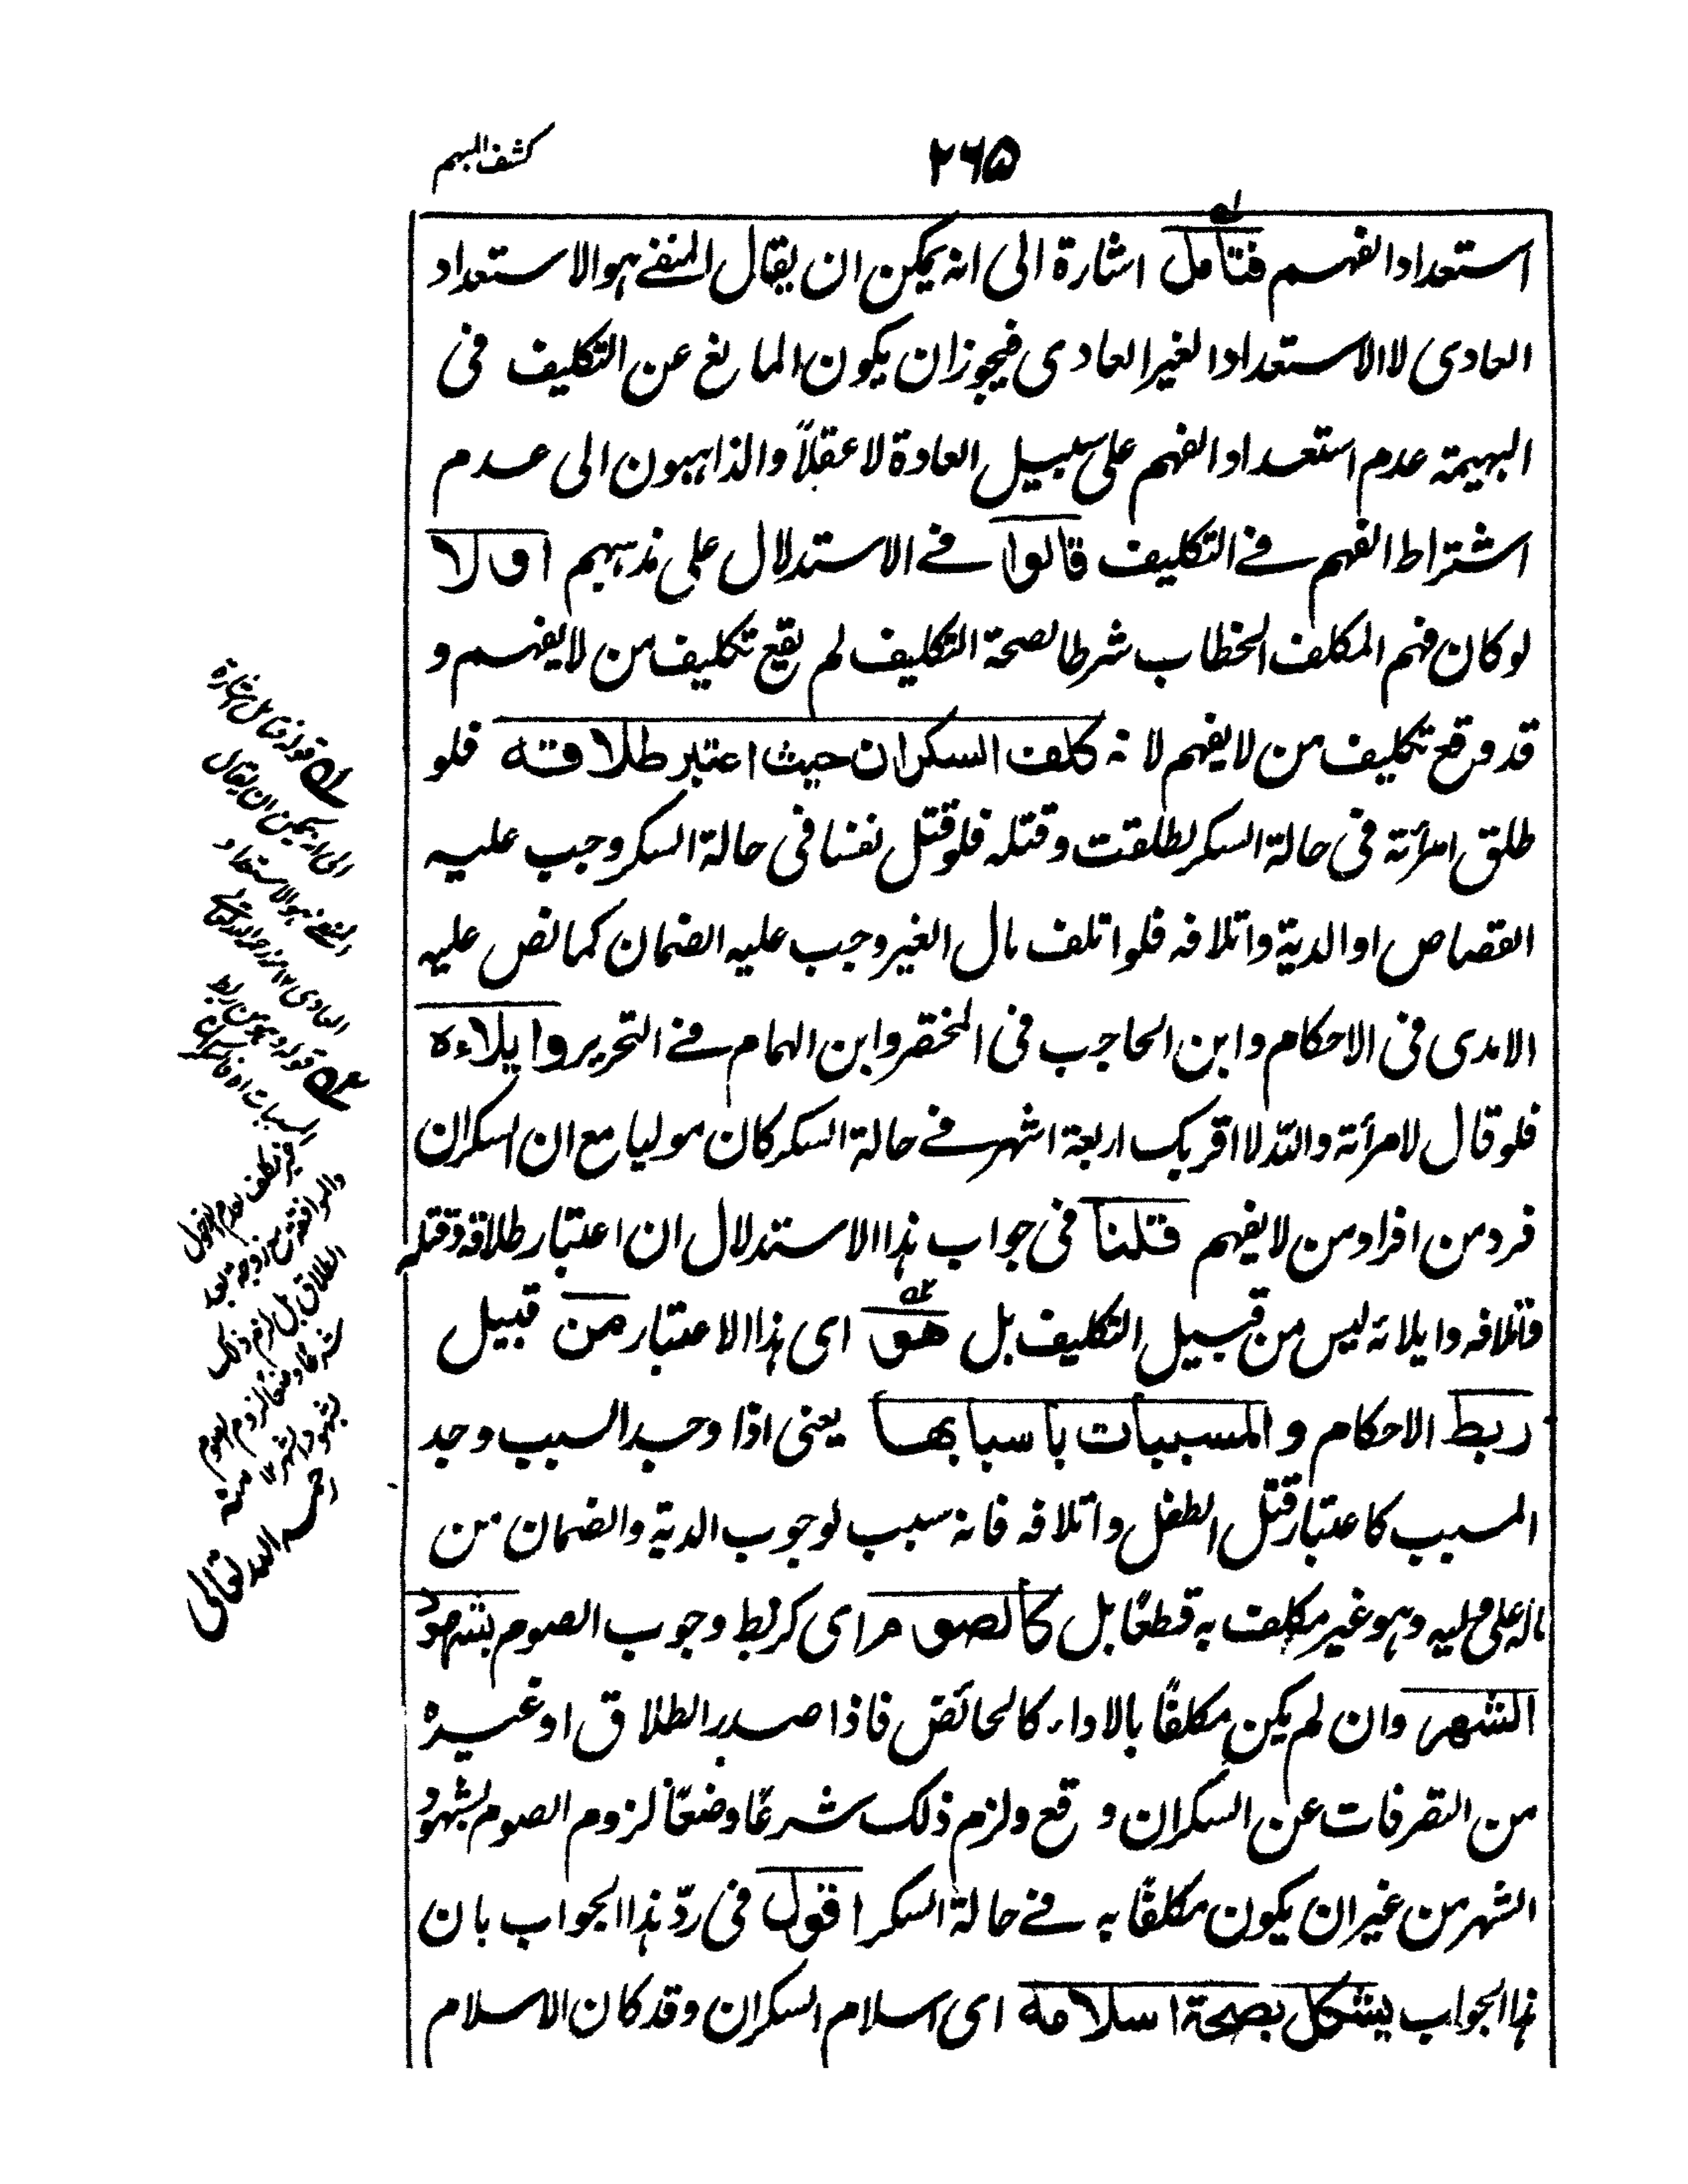 كشف المبهم
٢٦٥
استعداد الفهم فتأمل اشارة الى انه يمكن ان يقال المنفے هو الاستعداد
العادى لا الاستعداد الغير العادى فيجوز ان يكون المانع عن التكليف فى
البهيمة عدم استعداد الفهم على سبيل العادة لا عقلاً والذاهبون الى عدم
اشتراط الفهم فے التكليف قالوا فے الاستدلال على مذهبهم اولا
لو كان فهم المكلف الخطاب شرطا لصحة التكليف لم يقع تكليف من لا يفهم و
قد وقع تكليف من لا يفهم لانه كلف السكران حيث اعتبر طلاقه فلو
طلق امرأته فى حالة السكر لطلقت وقتله فلو قتل نفسا فى حالة السكر وجب عليه
القصاص او الدية واتلافه فلو اتلف مال الغير وجب عليه الضمان كما نص عليه
الامدى فى الاحكام وابن الحاجب فى المختصر وابن الهمام فے التحرير وايلاءه
فلو قال لامرأته والله لا اقربك اربعة اشهر فے حالة السكر كان موليا مع ان السكران
فرد من افراد من لا يفهم قلنا فى جواب هذا الاستدلال ان اعتبار طلاقه وقتله
واتلافه وايلائه ليس من قبيل التكليف بل هو اى هذا الاعتبار من قبيل
ربط الاحكام و المسببات باسبابها يعنى اذا وجد السبب وجد
المسبب كاعتبار قتل الطفل واتلافه فانه سبب لوجوب الدية والضمان من
ماله على وليه وهو غير مكلف به قطعًا بل كالصوم اى كربط وجوب الصوم بشهود
الشهر وان لم يكن مكلفًا بالاداء كالحائض فاذا صدر الطلاق او غيره
من التصرفات عن السكران وقع ولزم ذلك شرعًا وضعًا لزوم الصوم بشهود
الشهر من غير ان يكون مكلفًا به فے حالة السكر اقول فى ردّ هذا الجواب بان
هذا الجواب يشكل بصحة اسلامه اى اسلام السكران وقد كان الاسلام
له قوله فتأمل اشارة
الى انه يمكن ان يقال
المنفے هو الاستعداد
العادى ١٢ منه رحمه الله تعالى
قوله وهو من ربط
المسببات اه فالسكران
غير مكلف بعدم الدخول
الطلاق بل لزم ذلك
شرعًا وضعًا لزوم الصوم
بشهود الشهر ١٢ منه
رحمه الله تعالى